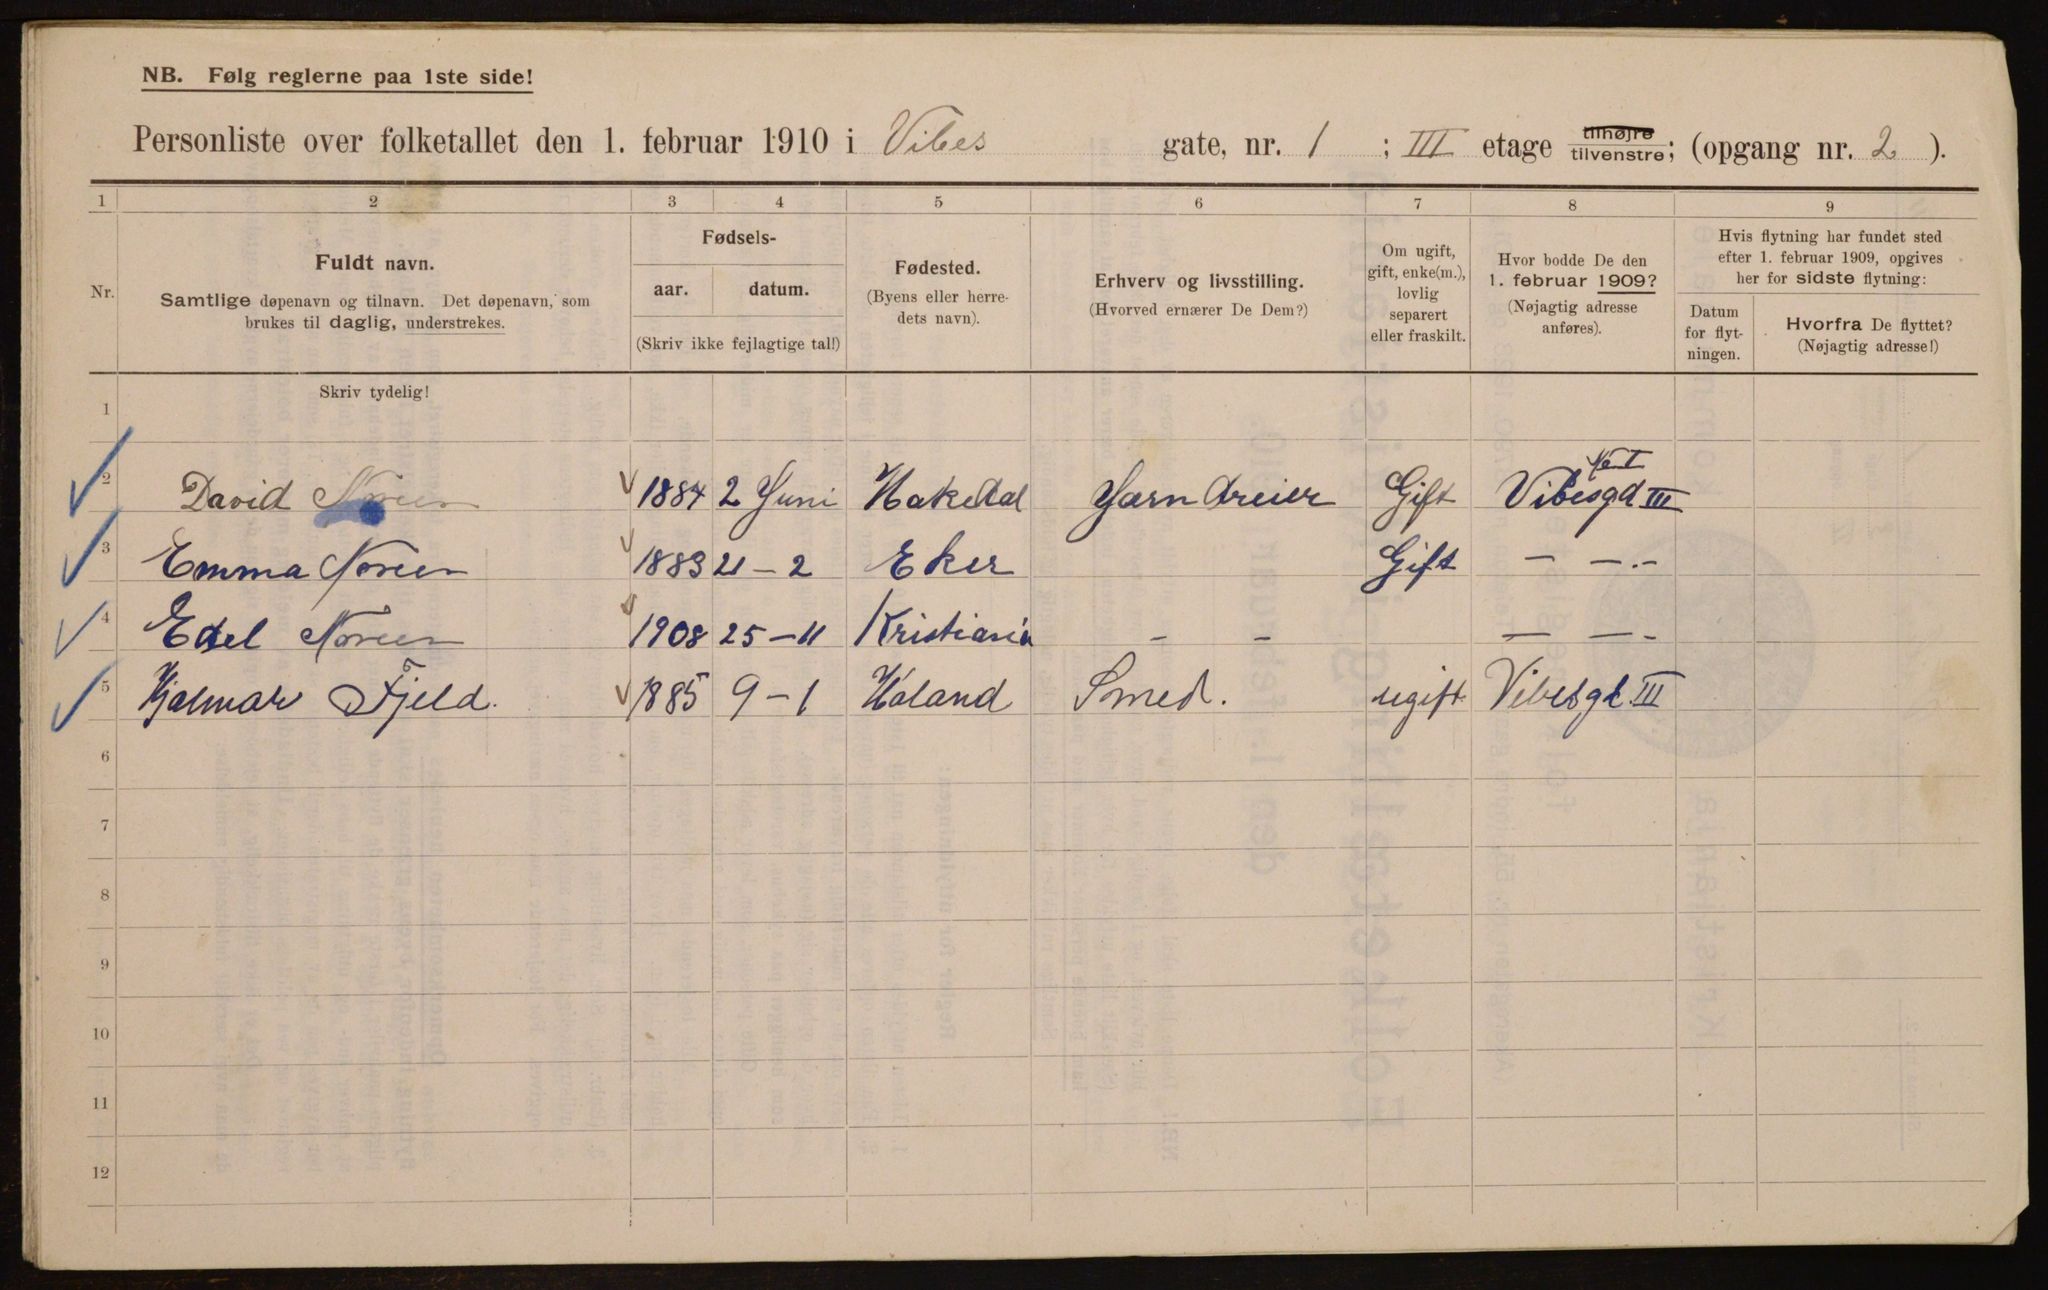 NB. Følg reglerne paa 1ste side!
Personliste over folketallet den 1. februar 1910 i Vibes gate, nr. 1 ; III etage tilhøjre tilvenstre; (opgang nr. 2 ).
1 2 3 4 5 6 7 8 9
Nr.
Fuldt navn.
Samtlige døpenavn og tilnavn. Det døpenavn, som
brukes til daglig, understrekes.
Fødsels-
aar. datum.
(Skriv ikke fejlagtige tal!)
Fødested.
(Byens eller herre-
dets navn).
Erhverv og livsstilling.
(Hvorved ernærer De Dem?)
Om ugift,
gift, enke(m.),
lovlig
separert
eller fraskilt.
Hvor bodde De den
1. februar 1909?
(Nøjagtig adresse
anføres).
Hvis flytning har fundet sted
efter 1. februar 1909, opgives
her for sidste flytning:
Datum
for flyt-
ningen.
Hvorfra De flyttet?
(Nøjagtig adresse!)
Skriv tydelig!
1
2 David Noreen 1884 2 Yuni Hakedal Yærn dreier Gift Vibesgd III
3 Emma Noreen 1883 21 – 2 Eker Gift – – . –
4 Edel Noreen 1908 25 – 11 Kristiania – – – – –
5 Hjalmar Fjeld. 1885 9 – 1 Høland Smed. ugift Vibesgt. III
6
7
8
9
10
11
12